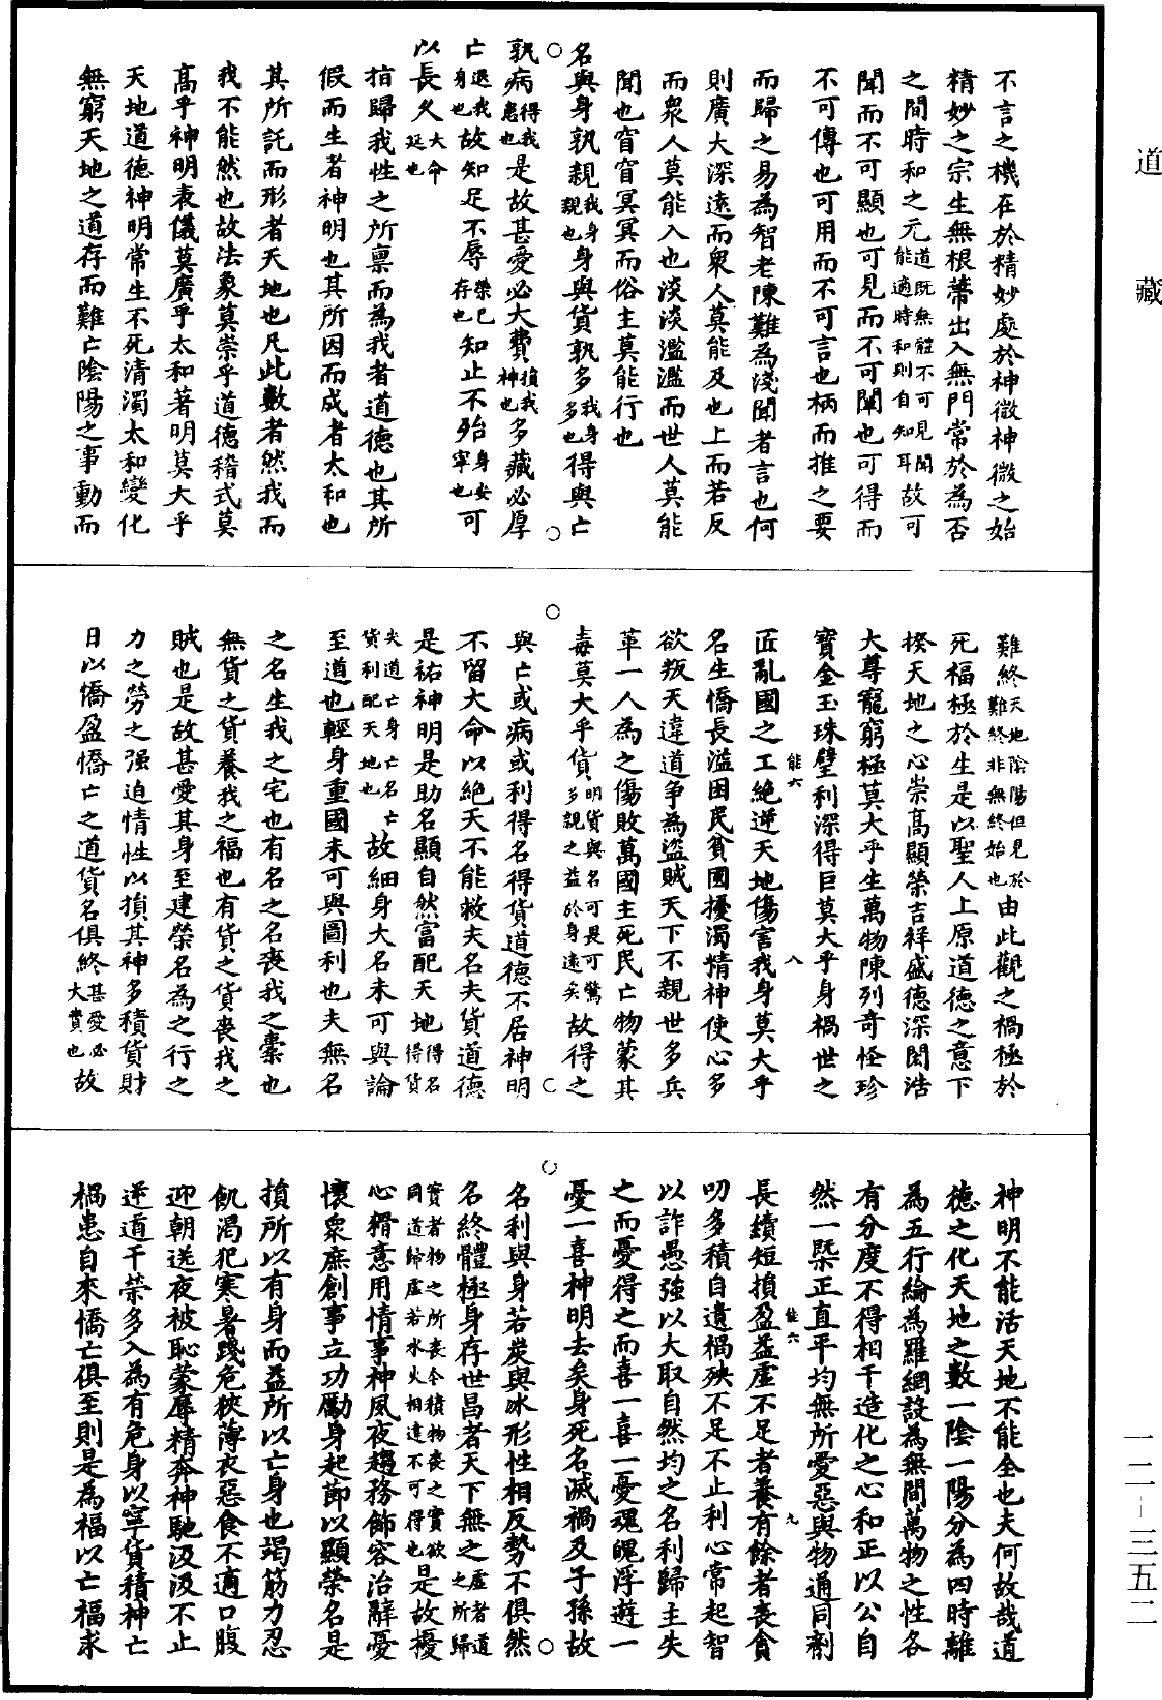 道藏
不言之機在於精妙處於神微神微之始
精妙之宗生無根蔕出入無門常於為否
之間時和之元道既無體不可見聞能適時和則自知耳故可
聞而不可顯也可見而不可闡也可得而
不可傳也可用而不可言也柄而推之要
而歸之易為智老陳難為淺聞者言也何
則廣大深遠而衆人莫能及也上而若反
而衆人莫能入也淡淡濫濫而世人莫能
聞也窅窅冥冥而俗主莫能行也
名與身孰親我身親也身與貨孰多我身多也得與亡
孰病得我患也是故甚愛必大費損我神也多藏必厚
亡退我身也故知足不辱榮已存也知止不殆身安寧也可
以長久大命延也
指歸我性之所禀而為我者道德也其所
假而生者神明也其所因而成者太和也
其所託而形者天地也凡此數者然我而
我不能然也故法象莫崇乎道德稽式莫
高乎神明表儀莫廣乎太和著明莫大乎
天地道德神明常生不死清濁太和變化
無窮天地之道存而難亡陰陽之事動而
難終天地陰陽但見於難終非無終始也由此觀之禍極於
死福極於生是以聖人上原道德之意下
揆天地之心崇高顯榮吉祥盛德深閎浩
大尊寵窮極莫大乎生萬物陳列奇怪珍
寶金玉珠璧利深得巨莫大乎身禍世之
能六 八
匠亂國之工絶逆天地傷害我身莫大乎
名生憍長溢困民貧國擾濁精神使心多
欲叛天違道爭為盗賊天下不親世多兵
革一人為之傷敗萬國主死民亡物蒙其
毒莫大乎貨明貨與名可畏可驚多親之益於身遠矣故得之
與亡或病或利得名得貨道德不居神明
不留大命以絶天不能救夫名夫貨道德
是祐神明是助名顯自然富配天地得名得貨
夫道亡身亡名亡貨利配天地也故細身大名未可與論
至道也輕身重國未可與圖利也夫無名
之名生我之宅也有名之名喪我之橐也
無貨之貨養我之福也有貨之貨喪我之
賊也是故甚愛其身至建榮名為之行之
力之勞之强迫情性以損其神多積貨財
日以憍盈憍亡之道貨名俱終甚愛必大費也故
神明不能活天地不能全也夫何故哉道
德之化天地之數一陰一陽分為四時離
為五行綸為羅網設為無間萬物之性各
有分度不得相干造化之心和正以公自
然一槩正直平均無所愛惡與物通同劑
能六 九
長續短損盈益虛不足者養有餘者喪貪
叨多積自遺禍殃不足不止利心常起智
以詐愚強以大取自然均之名利歸主失
之而憂得之而喜一喜一憂魂魄浮遊一
憂一喜神明去矣身死名滅禍及子孫故
名利與身若炭與冰形性相反勢不俱然
名終體極身存世昌者天下無之虛者道之所歸
實者物之所喪今積物喪之實欲同道歸虛若水火相違不可得也是故擾
心䊩意用情事神夙夜趨務飾容治辭憂
懷衆庶創事立功勵身起節以顯榮名是
損所以有身而益所以亡身也竭筋力忍
飢渴犯寒暑踐危狹薄衣惡食不適口腹
迎朝送夜被恥蒙辱精奔神馳汲汲不止
逆道干榮多入為有危身以寧貨積神亡
禍患自來憍亡俱至則是為福以亡福求
一二-三五二